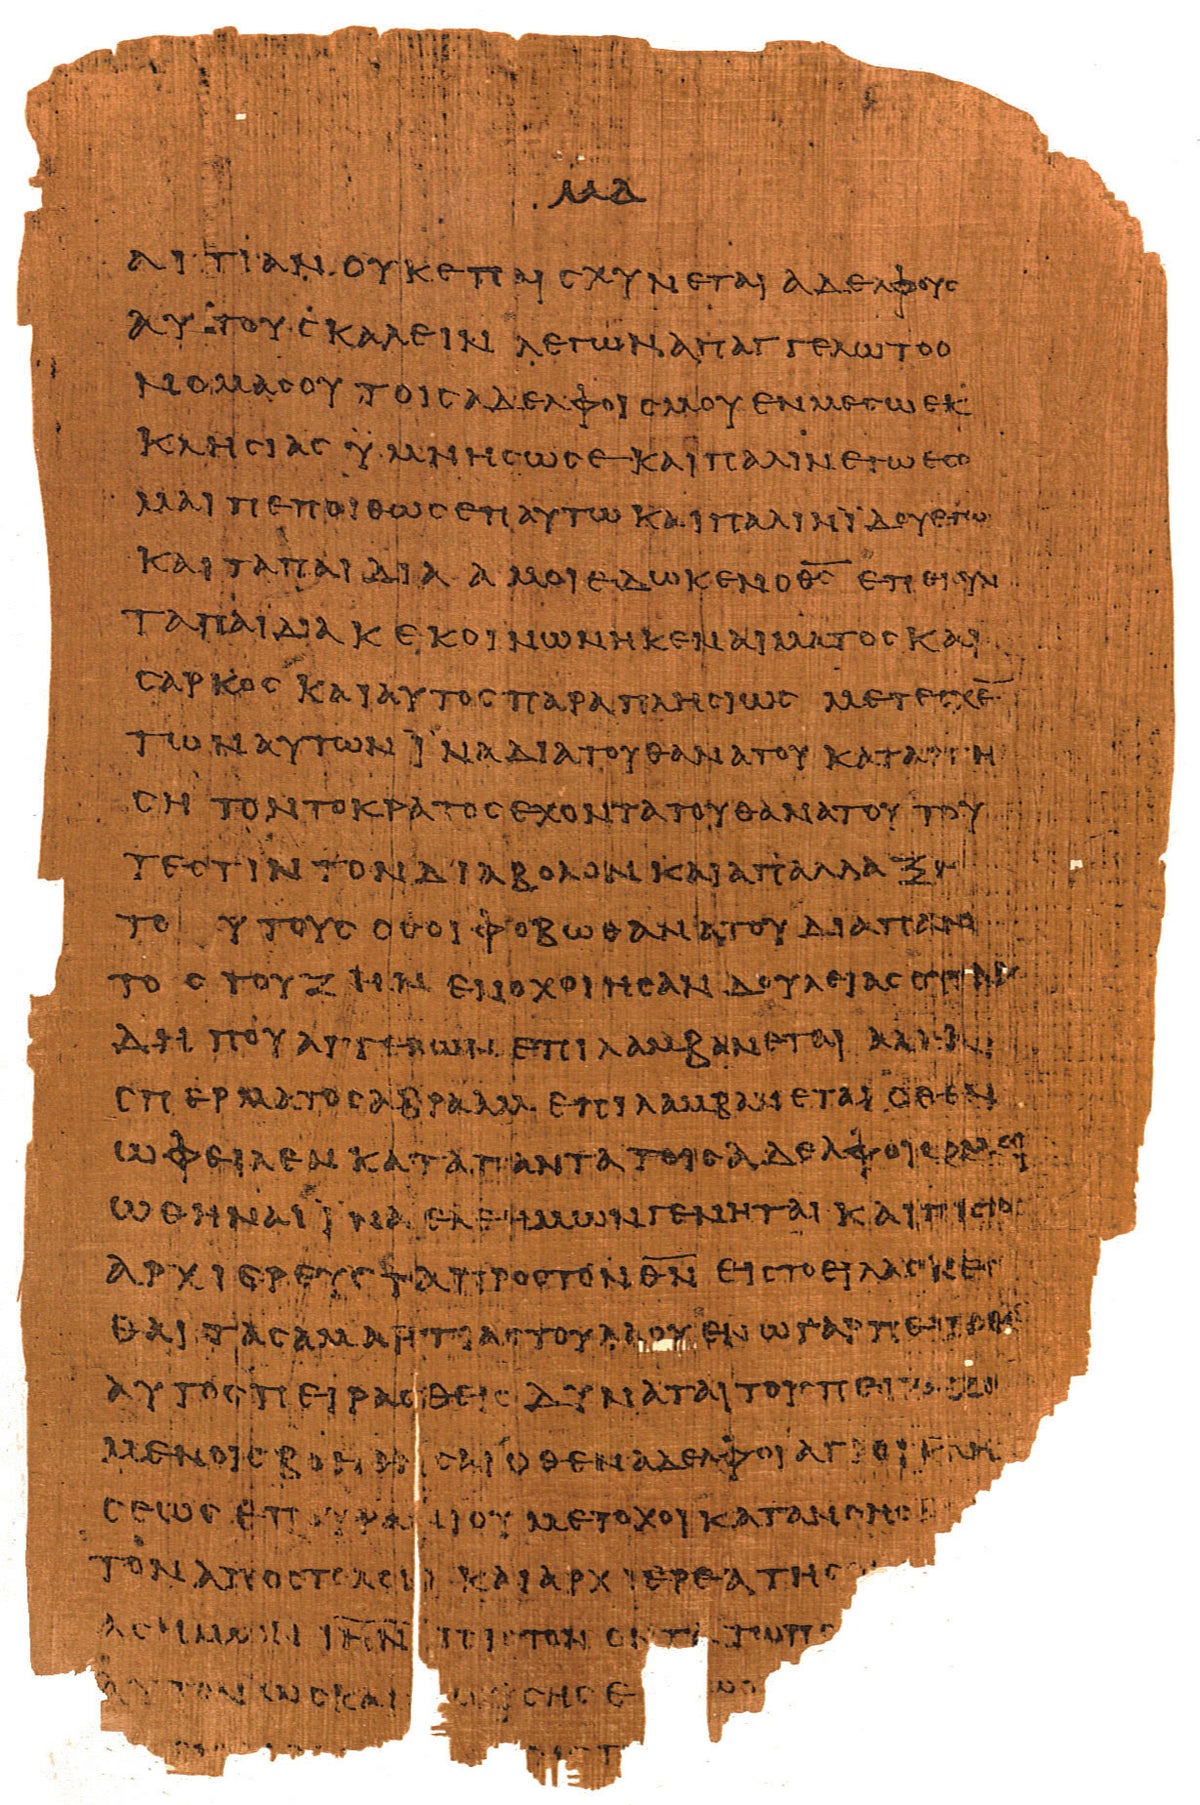 ΜΔ
ΑΙΤΙΑΝ ΟΥΚ ΕΠΑΙΣΧΥΝΕΤΑΙ ΑΔΕΛΦΟΥΣ
ΑΥΤΟΥΣ ΚΑΛΕΙΝ ΛΕΓΩΝ ΑΠΑΓΓΕΛΩ ΤΟ Ο
ΝΟΜΑ ΣΟΥ ΤΟΙΣ ΑΔΕΛΦΟΙΣ ΜΟΥ ΕΝ ΜΕΣΩ ΕΚ
ΚΛΗΣΙΑΣ ΫΜΝΗΣΩ ΣΕ ΚΑΙ ΠΑΛΙΝ ΕΓΩ ΕΣΟ
ΜΑΙ ΠΕΠΟΙΘΩΣ ΕΠ ΑΥΤΩ ΚΑΙ ΠΑΛΙΝ ΪΔΟΥ ΕΓΩ
ΚΑΙ ΤΑ ΠΑΙΔΙΑ Α ΜΟΙ ΕΔΩΚΕΝ Ο Θ̅Σ̅ ΕΠΕΙ ΟΥΝ
ΤΑ ΠΑΙΔΙΑ ΚΕΚΟΙΝΩΝΗΚΕΝ ΑΙΜΑΤΟΣ ΚΑΙ
ΣΑΡΚΟΣ ΚΑΙ ΑΥΤΟΣ ΠΑΡΑΠΛΗΣΙΩΣ ΜΕΤΕΣΧΕ̅
ΤΩΝ ΑΥΤΩΝ ΪΝΑ ΔΙΑ ΤΟΥ ΘΑΝΑΤΟΥ ΚΑΤΑΡΓΗ
ΣΗ ΤΟΝ ΤΟ ΚΡΑΤΟΣ ΕΧΟΝΤΑ ΤΟΥ ΘΑΝΑΤΟΥ ΤΟΥ
ΤΕΣΤΙΝ ΤΟΝ ΔΙΑΒΟΛΟΝ ΚΑΙ ΑΠΑΛΛΑΞΗ
ΤΟΥΤΟΥΣ ΟΣΟΙ ΦΟΒΩ ΘΑΝΑΤΟΥ ΔΙΑ ΠΑΝ
ΤΟΣ ΤΟΥ ΖΗΝ ΕΝΟΧΟΙ ΗΣΑΝ ΔΟΥΛΕΙΑΣ ΟΥ ΓΑΡ
ΔΗ ΠΟΥ ΑΓΓΕΛΩΝ ΕΠΙΛΑΜΒΑΝΕΤΑΙ ΑΛΛΑ
ΣΠΕΡΜΑΤΟΣ ΑΒΡΑΑΜ ΕΠΙΛΑΜΒΑΝΕΤΑΙ ΟΘΕΝ
ΩΦΕΙΛΕΝ ΚΑΤΑ ΠΑΝΤΑ ΤΟΙΣ ΑΔΕΛΦΟΙΣ ΟΜΟΙ
ΩΘΗΝΑΙ ΪΝΑ ΕΛΕΗΜΩΝ ΓΕΝΗΤΑΙ ΚΑΙ ΠΙΣΤΟΣ
ΑΡΧΙΕΡΕΥΣ ΤΑ ΠΡΟΣ ΤΟΝ Θ̅Ν̅ ΕΙΣ ΤΟ ΕΙΛΑΣΚΕΣ
ΘΑΙ ΤΑΣ ΑΜΑΡΤΙΑΣ ΤΟΥ ΛΑΟΥ ΕΝ Ω ΓΑΡ ΠΕΠΟΝΘΕ
ΑΥΤΟΣ ΠΕΙΡΑΣΘΕΙΣ ΔΥΝΑΤΑΙ ΤΟΙΣ ΠΕΙΡΑΖΟ
ΜΕΝΟΙΣ ΒΟΗΘΗΣΑΙ ΟΘΕΝ ΑΔΕΛΦΟΙ ΑΓΙΟΙ ΚΛΗ
ΣΕΩΣ ΕΠΟΥΡΑΝΙΟΥ ΜΕΤΟΧΟΙ ΚΑΤΑΝΟΗΣ
ΤΟΝ ΑΠΟΣΤΟΛΟΝ ΚΑΙ ΑΡΧΙΕΡΕΑ ΤΗΣ
ΛΟΓΙΑΣ ΗΜΩΝ Ι̅Η̅Ν̅ ΠΙΣΤΟΝ ΟΝΤΑ ΤΩ Π
ΑΥΤΟΝ ΩΣ ΚΑΙ ΜΩΥΣΗΣ Ε